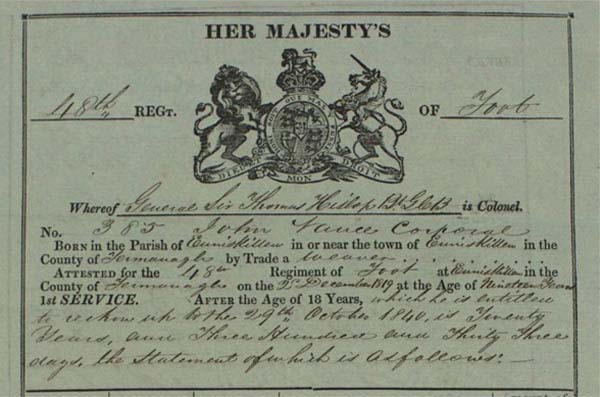 HER MAJESTY'S
48th REGT. OF Foot
QUI MAL
DIEU ET MON DROIT
Whereof General Sir Thomas Hislop Bt GCB is Colonel.
No. 385 John Vance Corporal
BORN in the Parish of Enniskillen in or near the town of Enniskillen in the
County of Fermanagh by Trade a weaver
ATTESTED for the 48th Regiment of Foot at Enniskillen in the
County of Fermanagh on the 2d December 1819 at the Age of Nineteen Years
1st SERVICE. AFTER the Age of 18 Years, which he is entitled
to reckon up to the 29th October 1840, is Twenty
Years, and Three Hundred and Thirty Three
days, the Statement of which is as follows:—